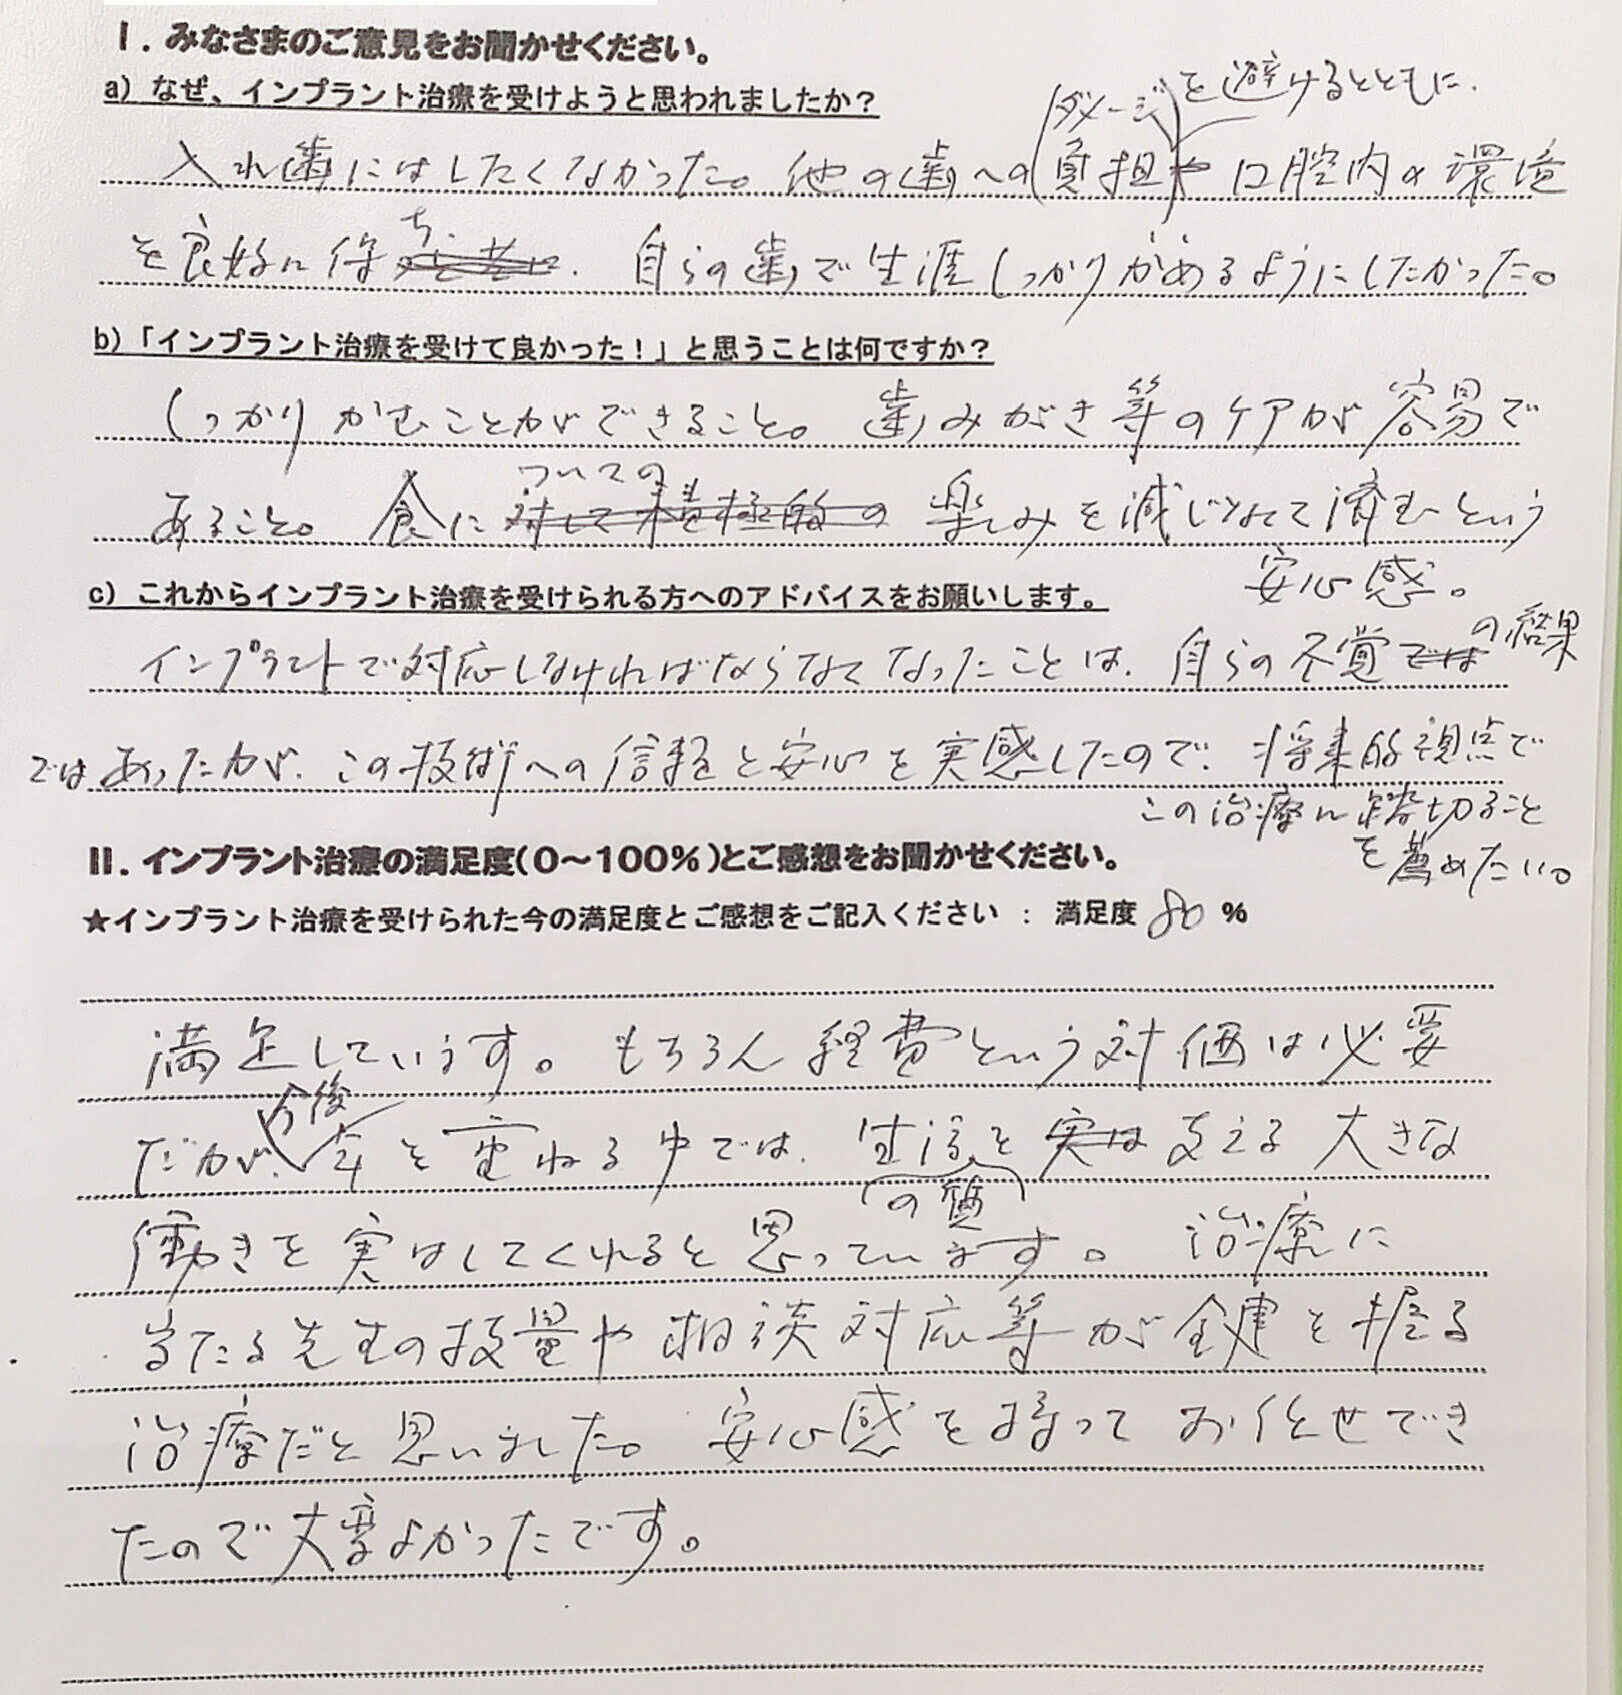 Ⅰ．みなさまのご意見をお聞かせください。
a) なぜ、インプラント治療を受けようと思われましたか？
ダメージ を避けるとともに、
入れ歯にはしたくなかった。他の歯への負担や口腔内の環境
を良好に保ち、自らの歯で生涯しっかりかめるようにしたかった。
b)「インプラント治療を受けて良かった！」と思うことは何ですか？
しっかりかむことができること。歯みがき等のケアが容易で
ついての
あること。食に対して積極的の楽しみを減じなくて済むという
安心感。
c) これからインプラント治療を受けられる方へのアドバイスをお願いします。
インプラントで対応しなければならなくなったことは、自らの不覚では の結果
ではあったが、この技術への信頼と安心を実感したので、将来的視点で
この治療に踏切ること
を薦めたい。
Ⅱ．インプラント治療の満足度（０～１００％）とご感想をお聞かせください。
★インプラント治療を受けられた今の満足度とご感想をご記入ください ： 満足度 80 %
満足しています。もちろん経費という対価は必要
今後
だが、年を重ねる中では、生活を実は支える大きな
の質
働きを実はしてくれると思っています。治療に
当たる先生の技量や相談対応等が鍵を握る
治療だと思いました。安心感を持ってお任せでき
たので大変よかったです。